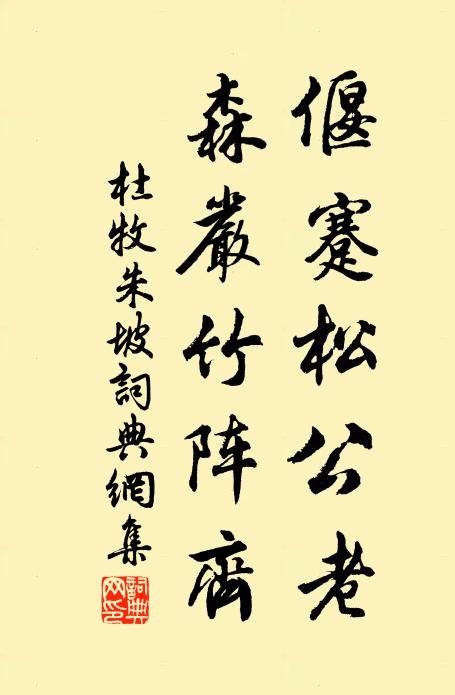 偃蹇松公老
森嚴竹阵齊
杜牧朱坡詞典網集
詞典网印